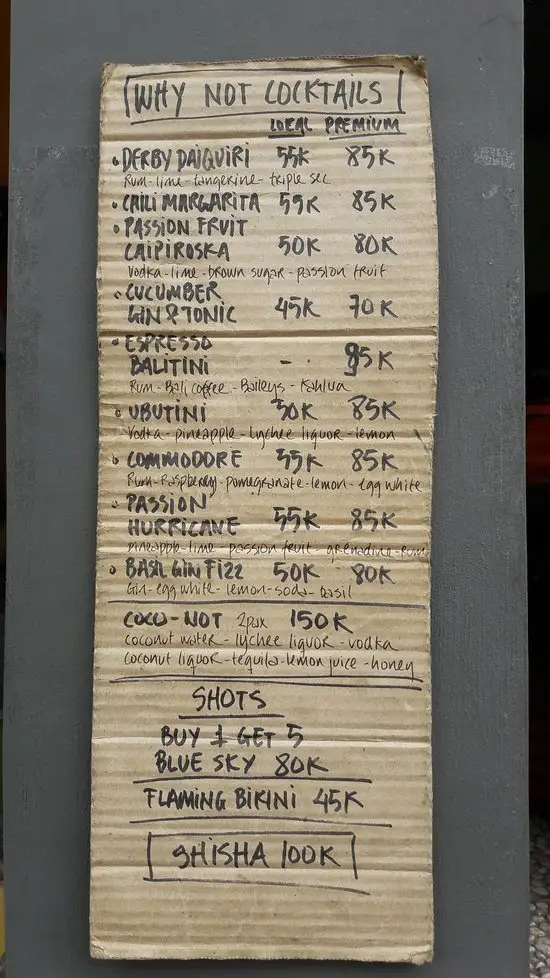 WHY NOT COCKTAILS
LOCAL PREMIUM
• DERBY DAIQUIRI 55K 85K
Rum-lime-tangerine-triple sec
• CHILI MARGARITA 55K 85K
• PASSION FRUIT
CAIPIROSKA 50K 80K
Vodka-lime-brown sugar-passion fruit
• CUCUMBER
GIN & TONIC 45K 70K
• ESPRESSO
BALITINI - 85K
Rum-Bali coffee-Baileys-Kahlua
• UBUTINI 50K 85K
Vodka-pineapple-lychee liquor-lemon
• COMMODORE 55K 85K
Rum-Raspberry-pomegranate-lemon-egg white
• PASSION
HURRICANE 55K 85K
pineapple-lime-passion fruit-grenadine-Rum
• BASIL GIN FIZZ 50K 80K
Gin-egg white-lemon-soda-basil
COCO-NOT 2pax 150K
coconut water-lychee liquor-vodka
coconut liquor-tequila-lemon juice-honey
SHOTS
BUY 1 GET 5
BLUE SKY 80K
FLAMING BIKINI 45K
SHISHA 100K